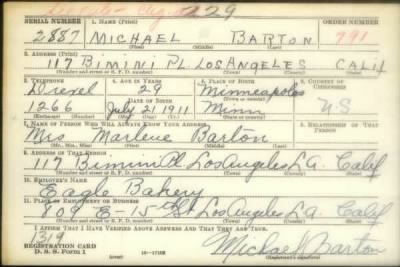 229
SERIAL NUMBER 1. NAME (Print) ORDER NUMBER
2887 MICHAEL BARTON 791
(First) (Middle) (Last)
2. ADDRESS (Print)
117 BIMINI PL. LOS ANGELES CALIF
(Number and street or R. F. D. number) (Town) (County) (State)
3. TELEPHONE 4. AGE IN YEARS 5. PLACE OF BIRTH 6. COUNTRY OF CITIZENSHIP
Drexel 29 Minneapolis
DATE OF BIRTH (Town or county)
1266 July 21 1911 Minn U.S
(Exchange) (Number) (Mo.) (Day) (Yr.) (State or country)
7. NAME OF PERSON WHO WILL ALWAYS KNOW YOUR ADDRESS 8. RELATIONSHIP OF THAT PERSON
Mrs Marlene Barton
(Mr., Mrs., Miss) (First) (Middle) (Last)
9. ADDRESS OF THAT PERSON
117 Bimini Pl Los Angeles L.A. Calif
(Number and street or R. F. D. number) (Town) (County) (State)
10. EMPLOYER'S NAME
Eagle Bakery
11. PLACE OF EMPLOYMENT OR BUSINESS
809 E-15th St Los Angeles L.A. Calif
(Number and street or R. F. D. number) (Town) (County) (State)
I AFFIRM THAT I HAVE VERIFIED ABOVE ANSWERS AND THAT THEY ARE TRUE.
REGISTRATION CARD
D. S. S. Form 1 (over) Michael Barton